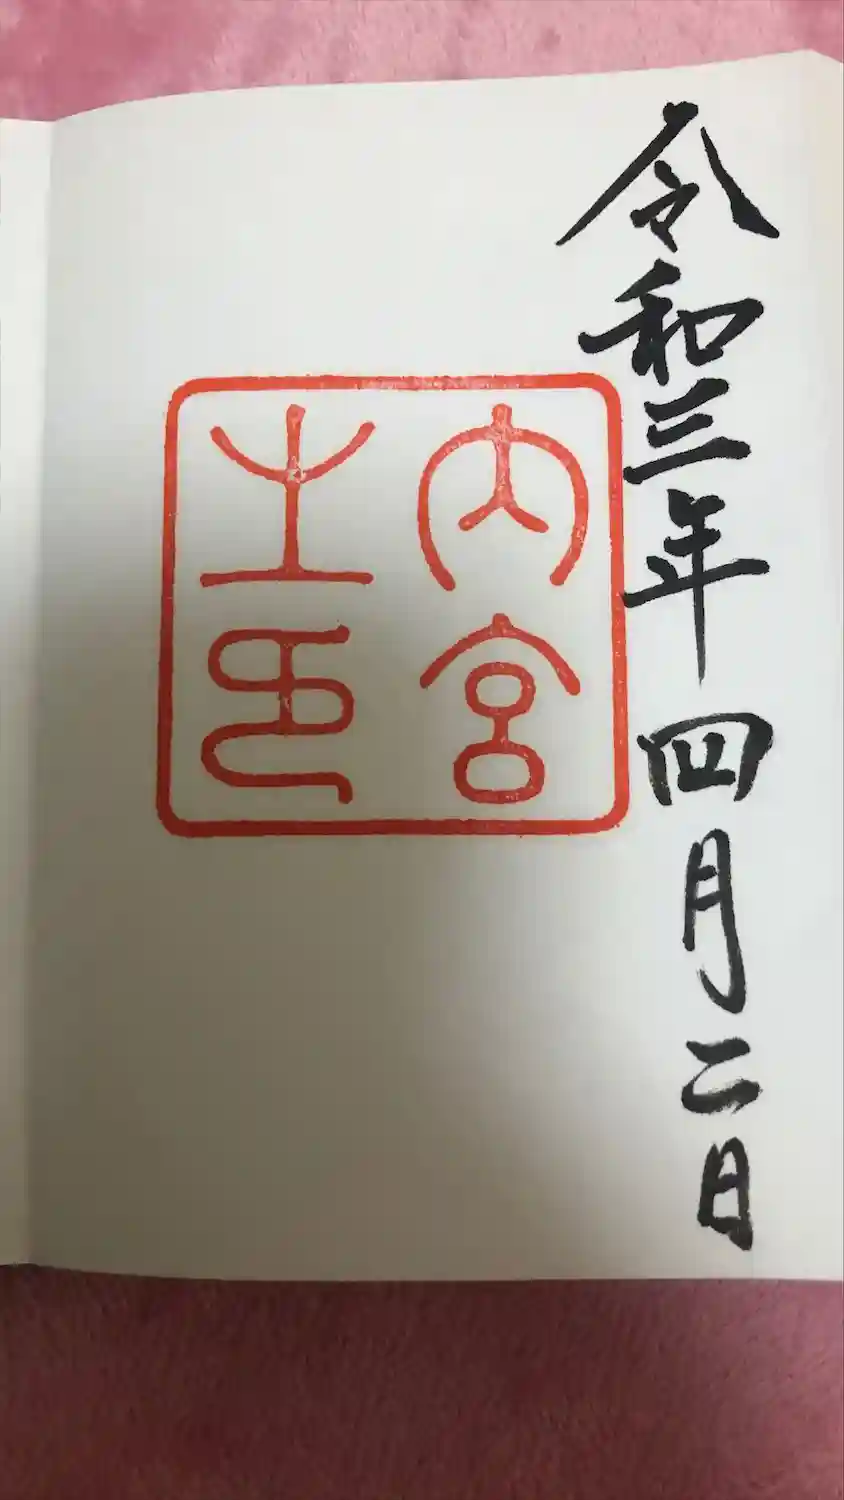 令和三年四月二日
内宮
之印